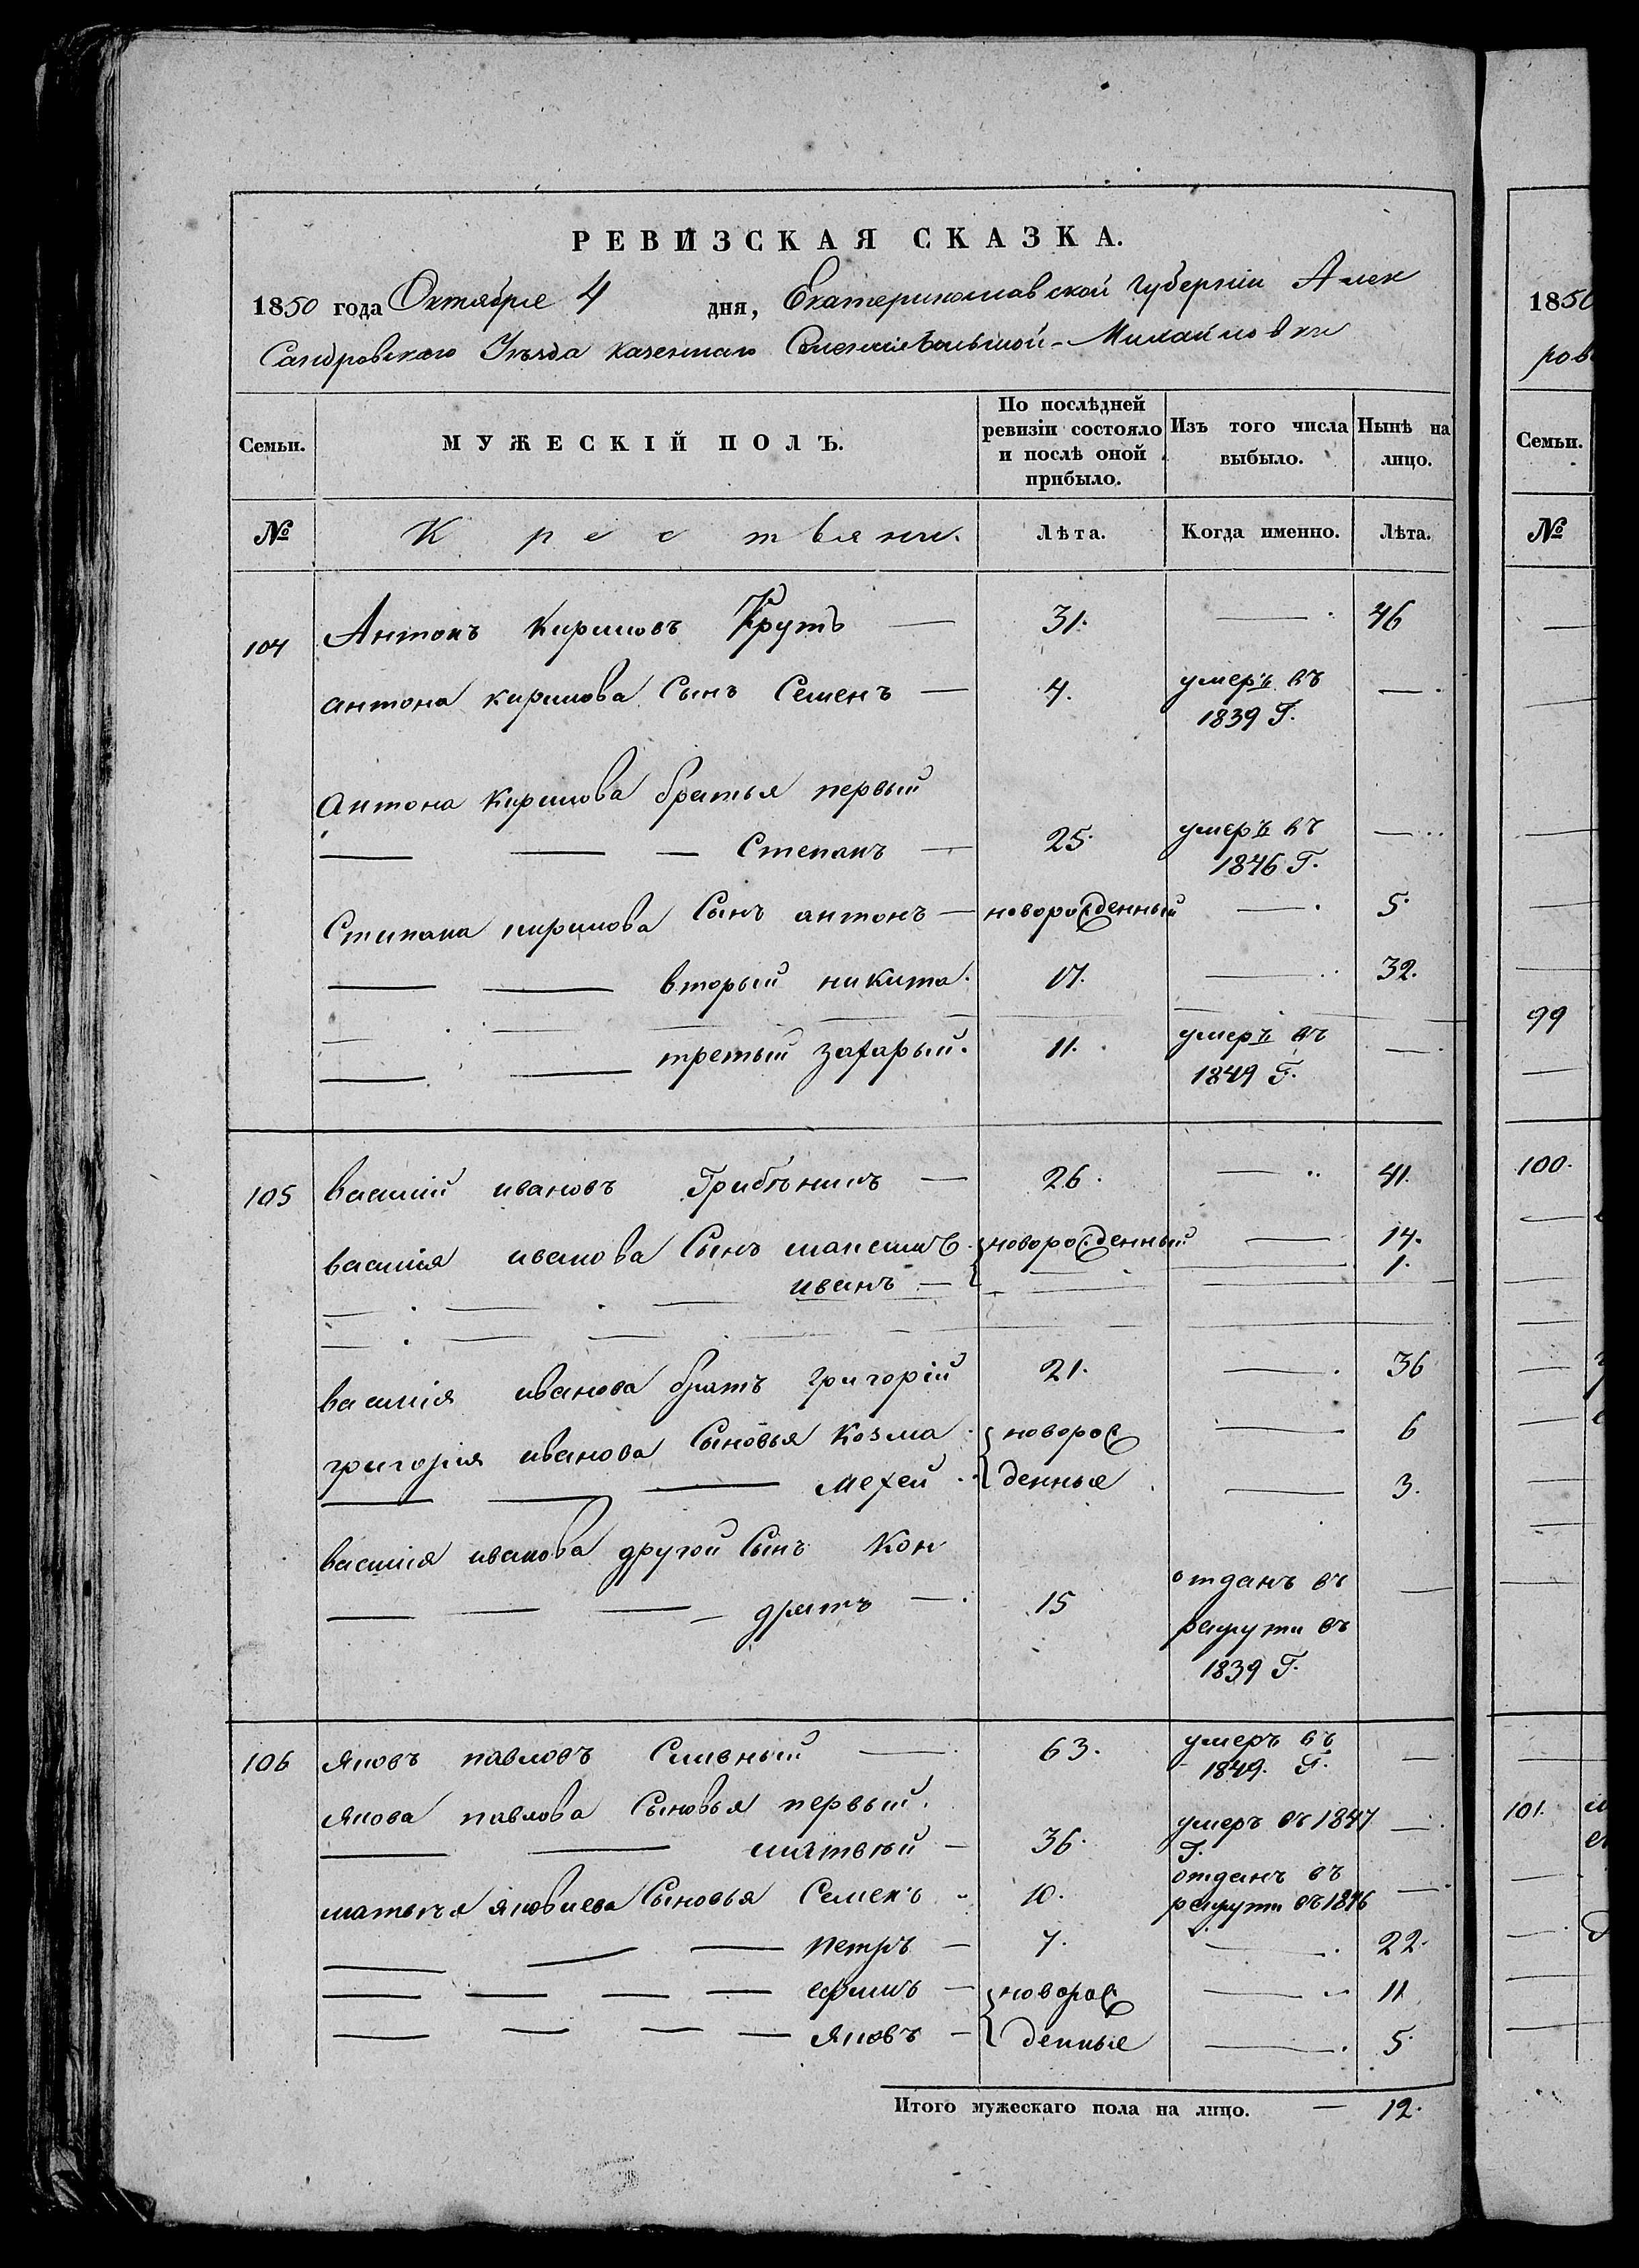 РЕВИЗСКАЯ СКАЗКА.
1850 года Октября 4 дня, Екатеринославской губерніи Алек
сандровского Уѣзда казенного Селенія Большой-Михайловки
Семьи. МУЖЕСКІЙ ПОЛЪ. По послѣдней ревизіи состояло и послѣ оной прибыло. Изъ того числа выбыло. Нынѣ на лицо.
№ Крестьяне. Лѣта. Когда именно. Лѣта.
104 Антонъ Кириловъ Крутъ — 31. — 46
антона кирилова Сынъ Семенъ — 4. умеръ въ 1839 Г. —
антона Кирилова братья первый
— — — Степанъ — 25. умеръ въ 1846 Г. —
Степана кирилова Сынъ антонъ — новорожденный — 5.
— — вторый никита. 17. — 32.
— — третый захарый. 11. умеръ въ 1849 Г. —
105 василій ивановъ Грибѣникъ — 26. — 41.
василія иванова Сынъ максимъ новорожденный — 14.
— — — иванъ — — — 1.
василія иванова братъ григорій 21. — 36
григорія иванова Сыновья Козма новорож — 6
— — — мехей денные — 3.
василія иванова другой Сынъ Кон
— — — — дратъ — 15 отданъ въ рекруты въ 1839 Г. —
106 яковъ павловъ Сливный — 63. умеръ въ 1849. Г. —
якова павлова Сыновья первый
— — матвѣй — 36. умеръ въ 1847 Г. —
матвѣя яковлева Сыновья Семенъ 10. отданъ въ рекруты въ 1846 —
— — — петръ — 7. — 22.
— — — — ефимъ — новорож — 11
— — — — яковъ — денные — 5.
Итого мужескаго пола на лицо. — 12.
1850
ров
Семьи.
№
99
100.
101.